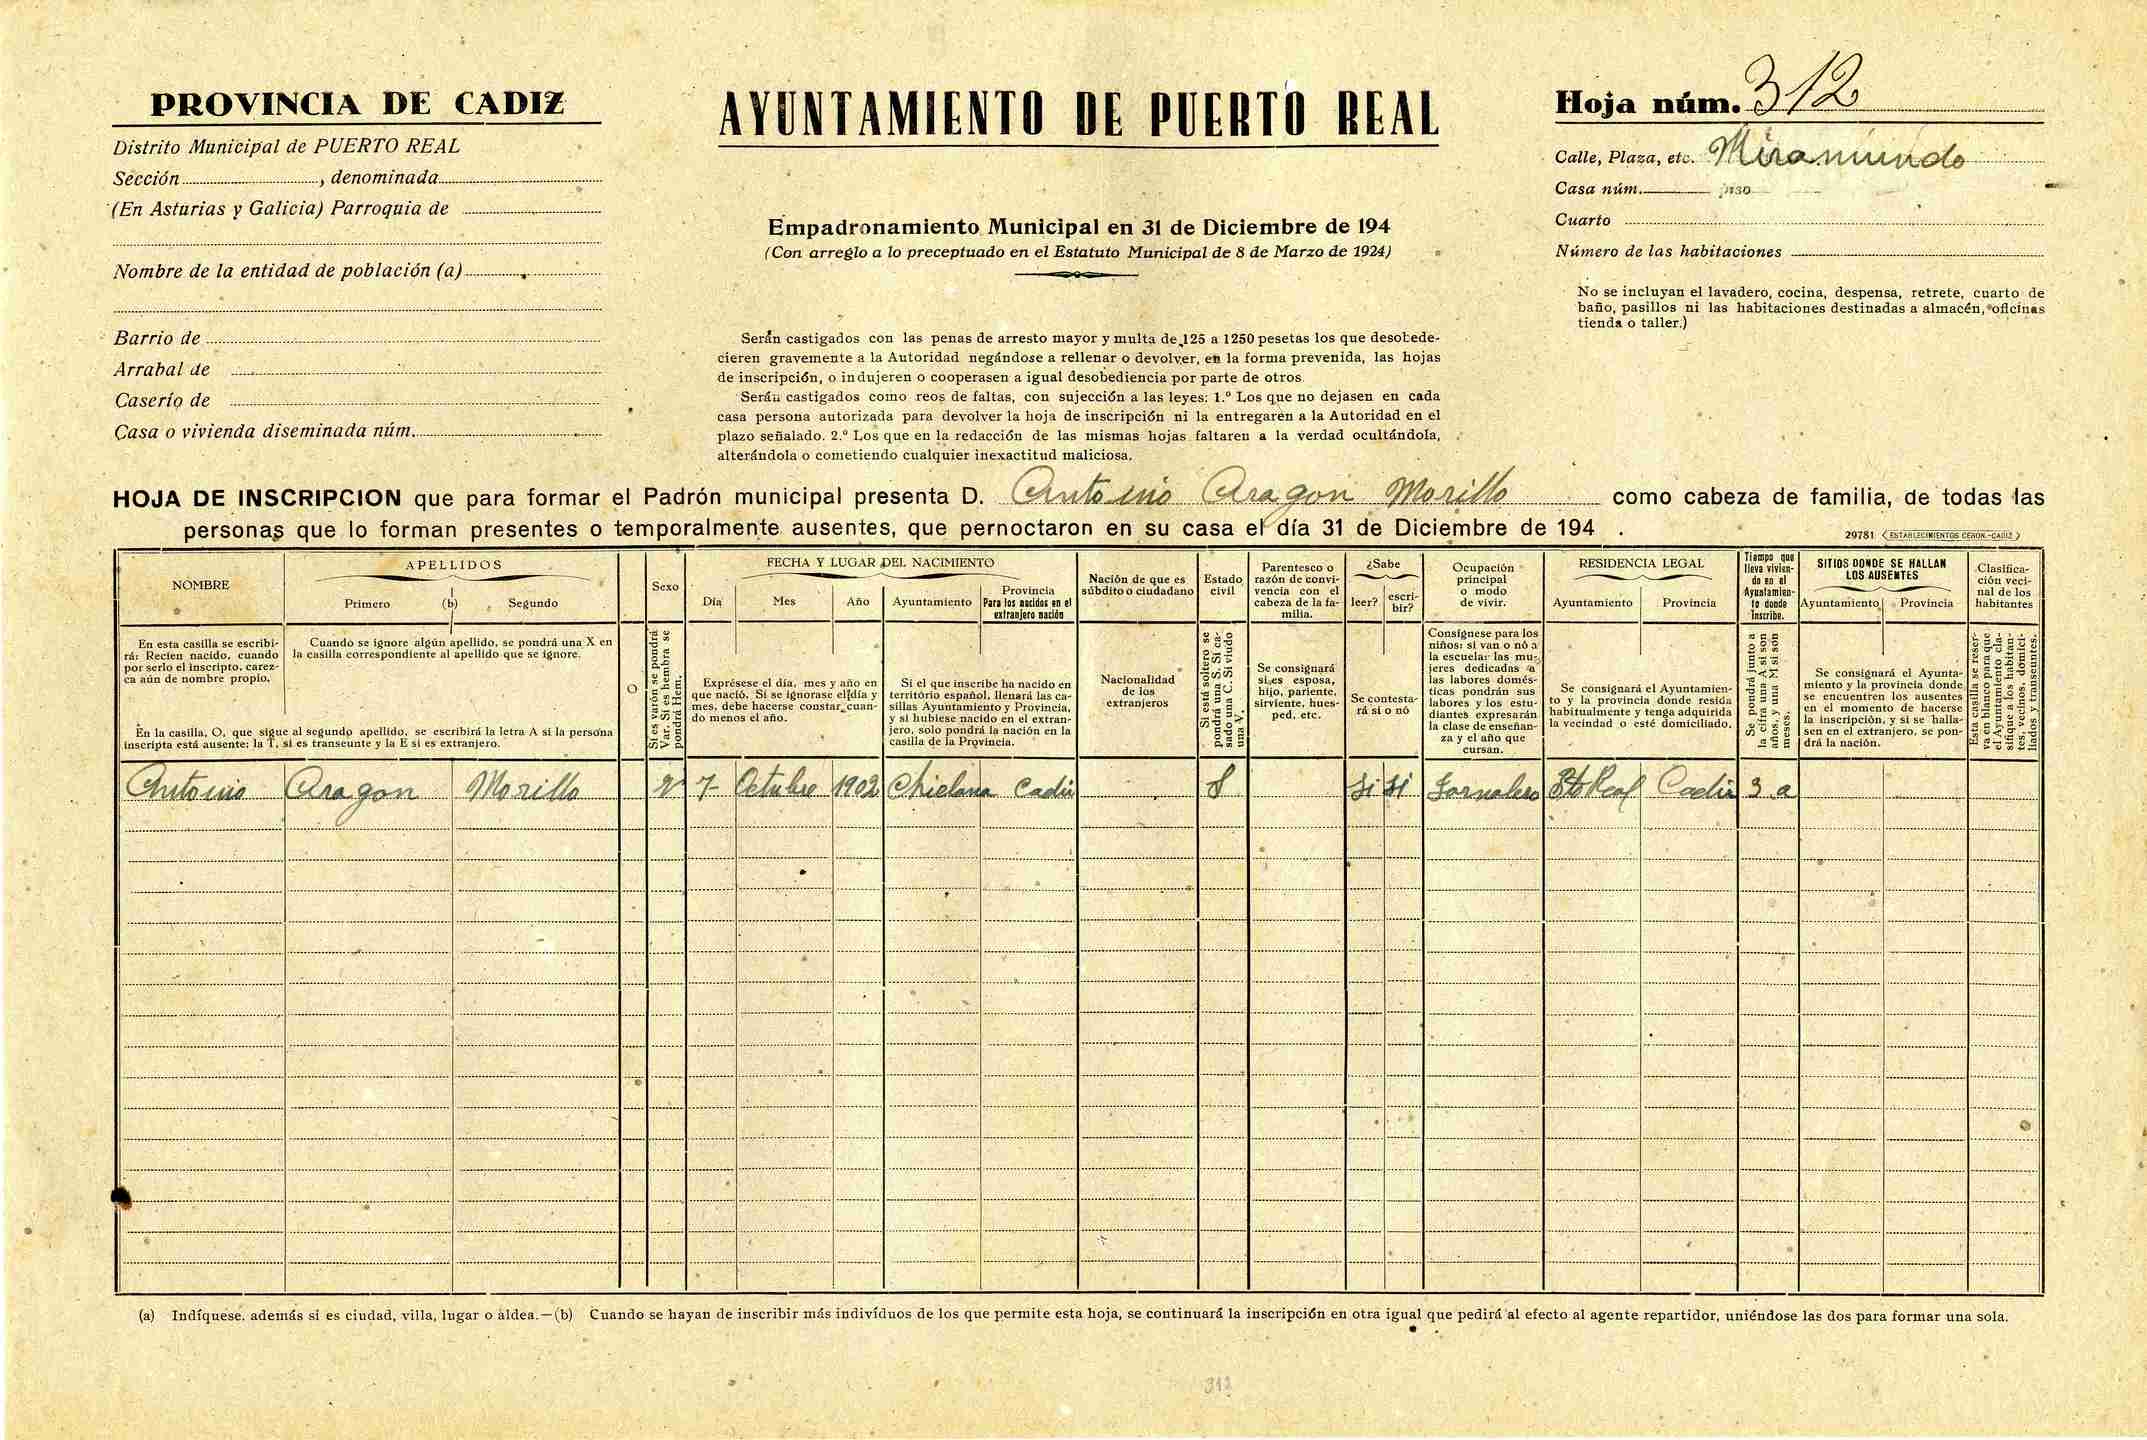 PROVINCIA DE CADIZ
Distrito Municipal de PUERTO REAL
Sección , denominada
(En Asturias y Galicia) Parroquia de
Nombre de la entidad de población (a)
Barrio de
Arrabal de
Caserío de
Casa o vivienda diseminada núm.
AYUNTAMIENTO DE PUERTO REAL
Empadronamiento Municipal en 31 de Diciembre de 194
(Con arreglo a lo preceptuado en el Estatuto Municipal de 8 de Marzo de 1924)
Serán castigados con las penas de arresto mayor y multa de 125 a 1250 pesetas los que desobede-
cieren gravemente a la Autoridad negándose a rellenar o devolver, en la forma prevenida, las hojas
de inscripción, o indujeren o cooperasen a igual desobediencia por parte de otros
Serán castigados como reos de faltas, con sujección a las leyes: 1.º Los que no dejasen en cada
casa persona autorizada para devolver la hoja de inscripción ni la entregaren a la Autoridad en el
plazo señalado. 2.º Los que en la redacción de las mismas hojas faltaren a la verdad ocultándola,
alterándola o cometiendo cualquier inexactitud maliciosa.
Hoja núm. 312
Calle, Plaza, etc. Miramundo
Casa núm. piso
Cuarto
Número de las habitaciones
No se incluyan el lavadero, cocina, despensa, retrete, cuarto de
baño, pasillos ni las habitaciones destinadas a almacén, oficinas
tienda o taller.)
HOJA DE INSCRIPCION que para formar el Padrón municipal presenta D. Antonio Aragon Morillo como cabeza de familia, de todas las
personas que lo forman presentes o temporalmente ausentes, que pernoctaron en su casa el día 31 de Diciembre de 194 .
29781 (ESTABLECIMIENTOS CERON.-CADIZ)
NOMBRE
En esta casilla se escribi-
rá: Recien nacido, cuando
por serlo el inscripto, carez-
ca aún de nombre propio.
APELLIDOS
Primero (b) Segundo
Cuando se ignore algún apellido, se pondrá una X en
la casilla correspondiente al apellido que se ignore.
En la casilla, O, que sigue al segundo apellido, se escribirá la letra A si la persona
inscripta está ausente; la T, si es transeunte y la E si es extranjero.
O
Sexo
Si es varón se pondrá
Var. Si es hembra se
pondrá Hem.
FECHA Y LUGAR DEL NACIMIENTO
Día Mes Año Ayuntamiento
Provincia
Para los nacidos en el
extranjero nación
Exprésese el día, mes y año en
que nació. Si se ignorase el día y
mes, debe hacerse constar cuan-
do menos el año.
Si el que inscribe ha nacido en
territorio español, llenará las ca-
sillas Ayuntamiento y Provincia,
y si hubiese nacido en el extran-
jero, solo pondrá la nación en la
casilla de la Provincia.
Nación de que es
súbdito o ciudadano
Nacionalidad
de los
extranjeros
Estado
civil
Si está soltero se
pondrá una S. Si ca-
sado una C. Si viudo
una V.
Parentesco o
razón de convi-
vencia con el
cabeza de la fa-
milia.
Se consignará
si es esposa,
hijo, pariente,
sirviente, hues-
ped, etc.
¿Sabe
leer? escri-
bir?
Se contesta-
rá si o nó
Ocupación
principal
o modo
de vivir.
Consígnese para los
niños: si van o nó a
la escuela: las mu-
jeres dedicadas a
las labores domés-
ticas pondrán sus
labores y los estu-
diantes expresarán
la clase de enseñan-
za y el año que
cursan.
RESIDENCIA LEGAL
Ayuntamiento Provincia
Se consignará el Ayuntamien-
to y la provincia donde resida
habitualmente y tenga adquirida
la vecindad o esté domiciliado.
Tiempo que
lleva vivien-
do en el
Ayuntamien-
to donde
inscribe.
Se pondrá junto a
la cifra una A si son
años, y una M si son
meses.
SITIOS DONDE SE HALLAN
LOS AUSENTES
Ayuntamiento Provincia
Se consignará el Ayunta-
miento y la provincia donde
se encuentren los ausentes
en el momento de hacerse
la inscripción, y si se halla-
sen en el extranjero, se pon-
drá la nación.
Clasifica-
ción veci-
nal de los
habitantes
Esta casilla se reser-
va en blanco para que
el Ayuntamiento cla-
sifique a los habitan-
tes, vecinos, domici-
liados y transeuntes.
Antonio Aragon Morillo V 7 Octubre 1902 Chiclana Cadiz S Si Si Jornalero Pto Real Cadiz 3 a
(a) Indíquese. además si es ciudad, villa, lugar o aldea.—(b) Cuando se hayan de inscribir más indivíduos de los que permite esta hoja, se continuará la inscripción en otra igual que pedirá al efecto al agente repartidor, uniéndose las dos para formar una sola.
312